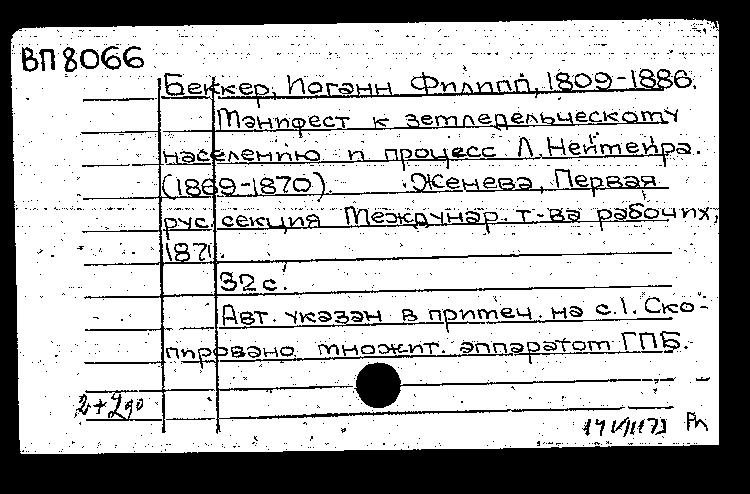 ВП 8066
Беккер, Иоганн Филипп, 1809-1886.
Манифест к земледельческому
населению и процесс Л. Неймейра.
(1869-1870). Женева, Первая
рус. секция Междунар. т-ва рабочих,
1871.
32 с.
Авт. указан в примеч. на с. 1. Ско-
пировано множит. аппаратом ГПБ.